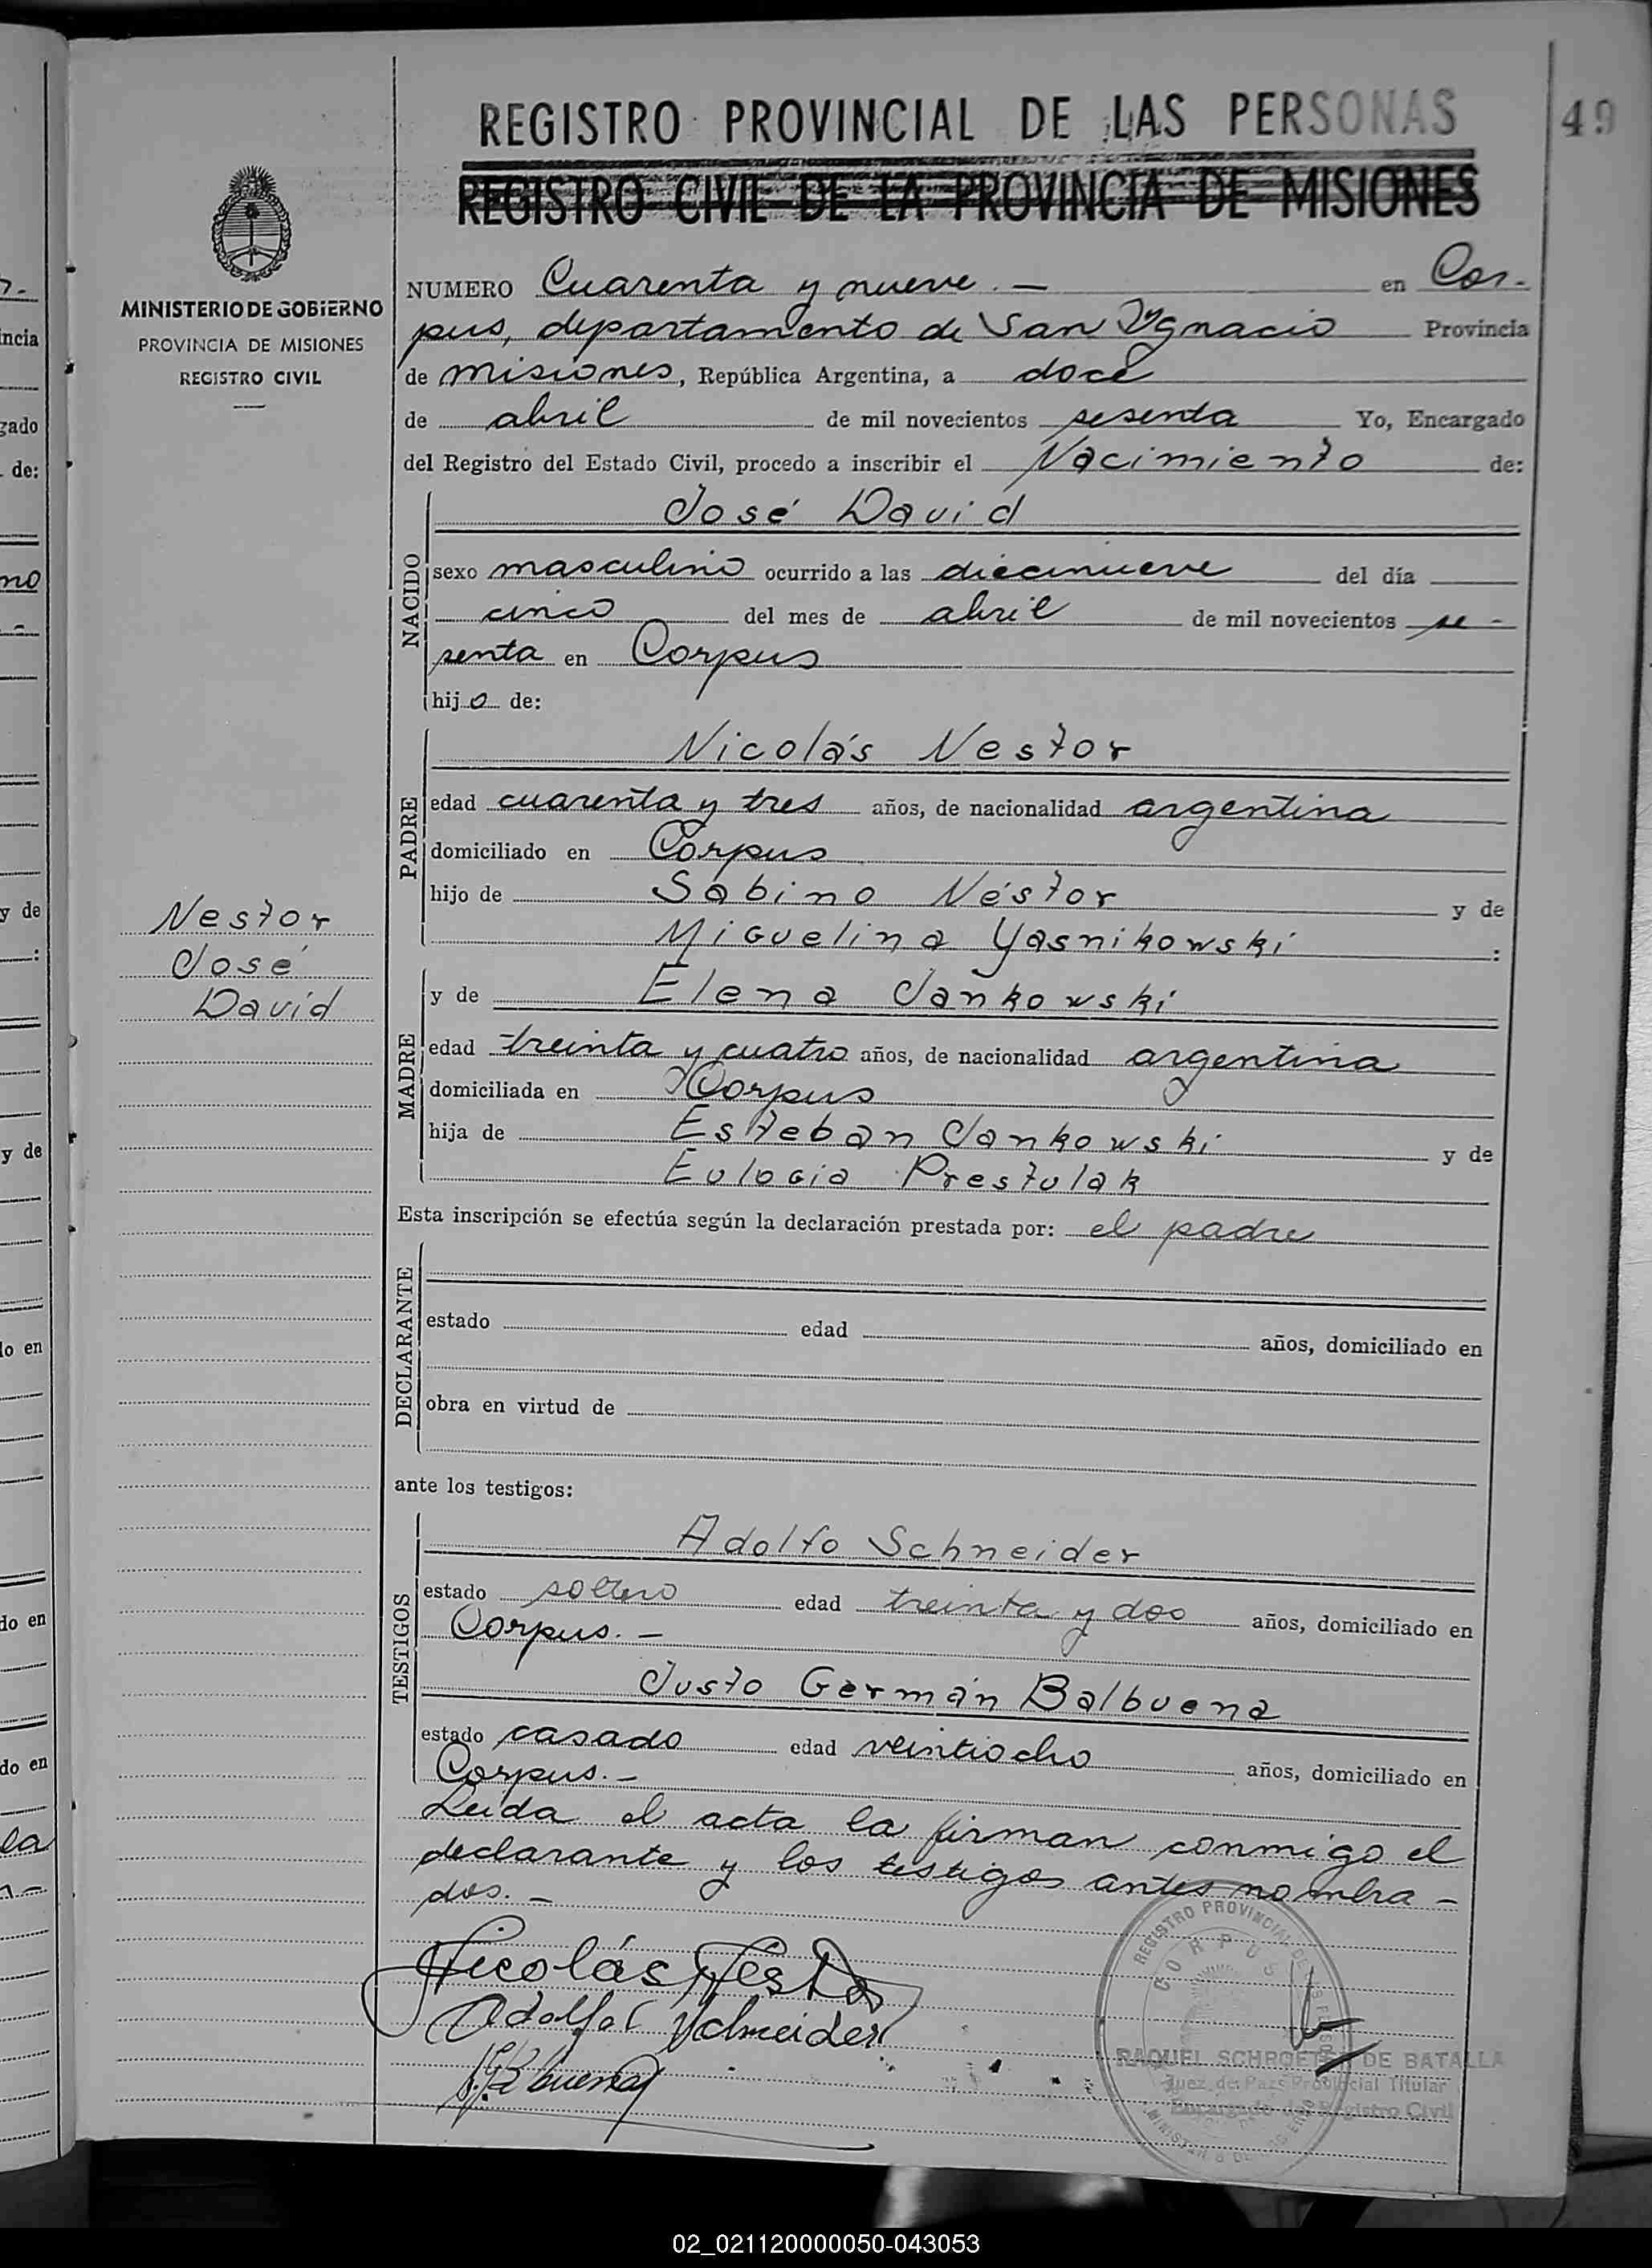 REGISTRO PROVINCIAL DE LAS PERSONAS
49
REGISTRO CIVIL DE LA PROVINCIA DE MISIONES
MINISTERIO DE GOBIERNO
PROVINCIA DE MISIONES
REGISTRO CIVIL
NUMERO Cuarenta y nueve. — en Cor-
pus, departamento de San Ygnacio Provincia
de misiones, República Argentina, a doce
de abril de mil novecientos sesenta Yo, Encargado
del Registro del Estado Civil, procedo a inscribir el Nacimiento de:
NACIDO
José David
sexo masculino ocurrido a las diecinueve del día
cinco del mes de abril de mil novecientos se-
senta en Corpus
hijo de:
PADRE
Nicolás Nestor
edad cuarenta y tres años, de nacionalidad argentina
domiciliado en Corpus
hijo de Sabino Néstor y de
Miguelina Yasnikowski :
Nestor
José
David
MADRE
y de Elena Jankowski
edad treinta y cuatro años, de nacionalidad argentina
domiciliada en Corpus
hija de Esteban Jankowski y de
Eulogia Prestulak
Esta inscripción se efectúa según la declaración prestada por: el padre
DECLARANTE
estado edad años, domiciliado en
obra en virtud de
ante los testigos:
TESTIGOS
Adolfo Schneider
estado soltero edad treinta y dos años, domiciliado en
Corpus. —
Justo Germán Balbuena
estado casado edad veintiocho años, domiciliado en
Corpus. —
Leida el acta la firman conmigo el
declarante y los testigos antes nombra-
dos. —
Nicolás Nestor
Adolfo Schneider
REGISTRO PROVINCIAL DE LAS PERSONAS
CORPUS
RAQUEL SCHROETER DE BATALLA
Juez de Paz Provincial Titular
Encargado del Registro Civil
ncia
gado
de:
no
y de
:
y de
do en
do en
do en
la
02_021120000050-043053